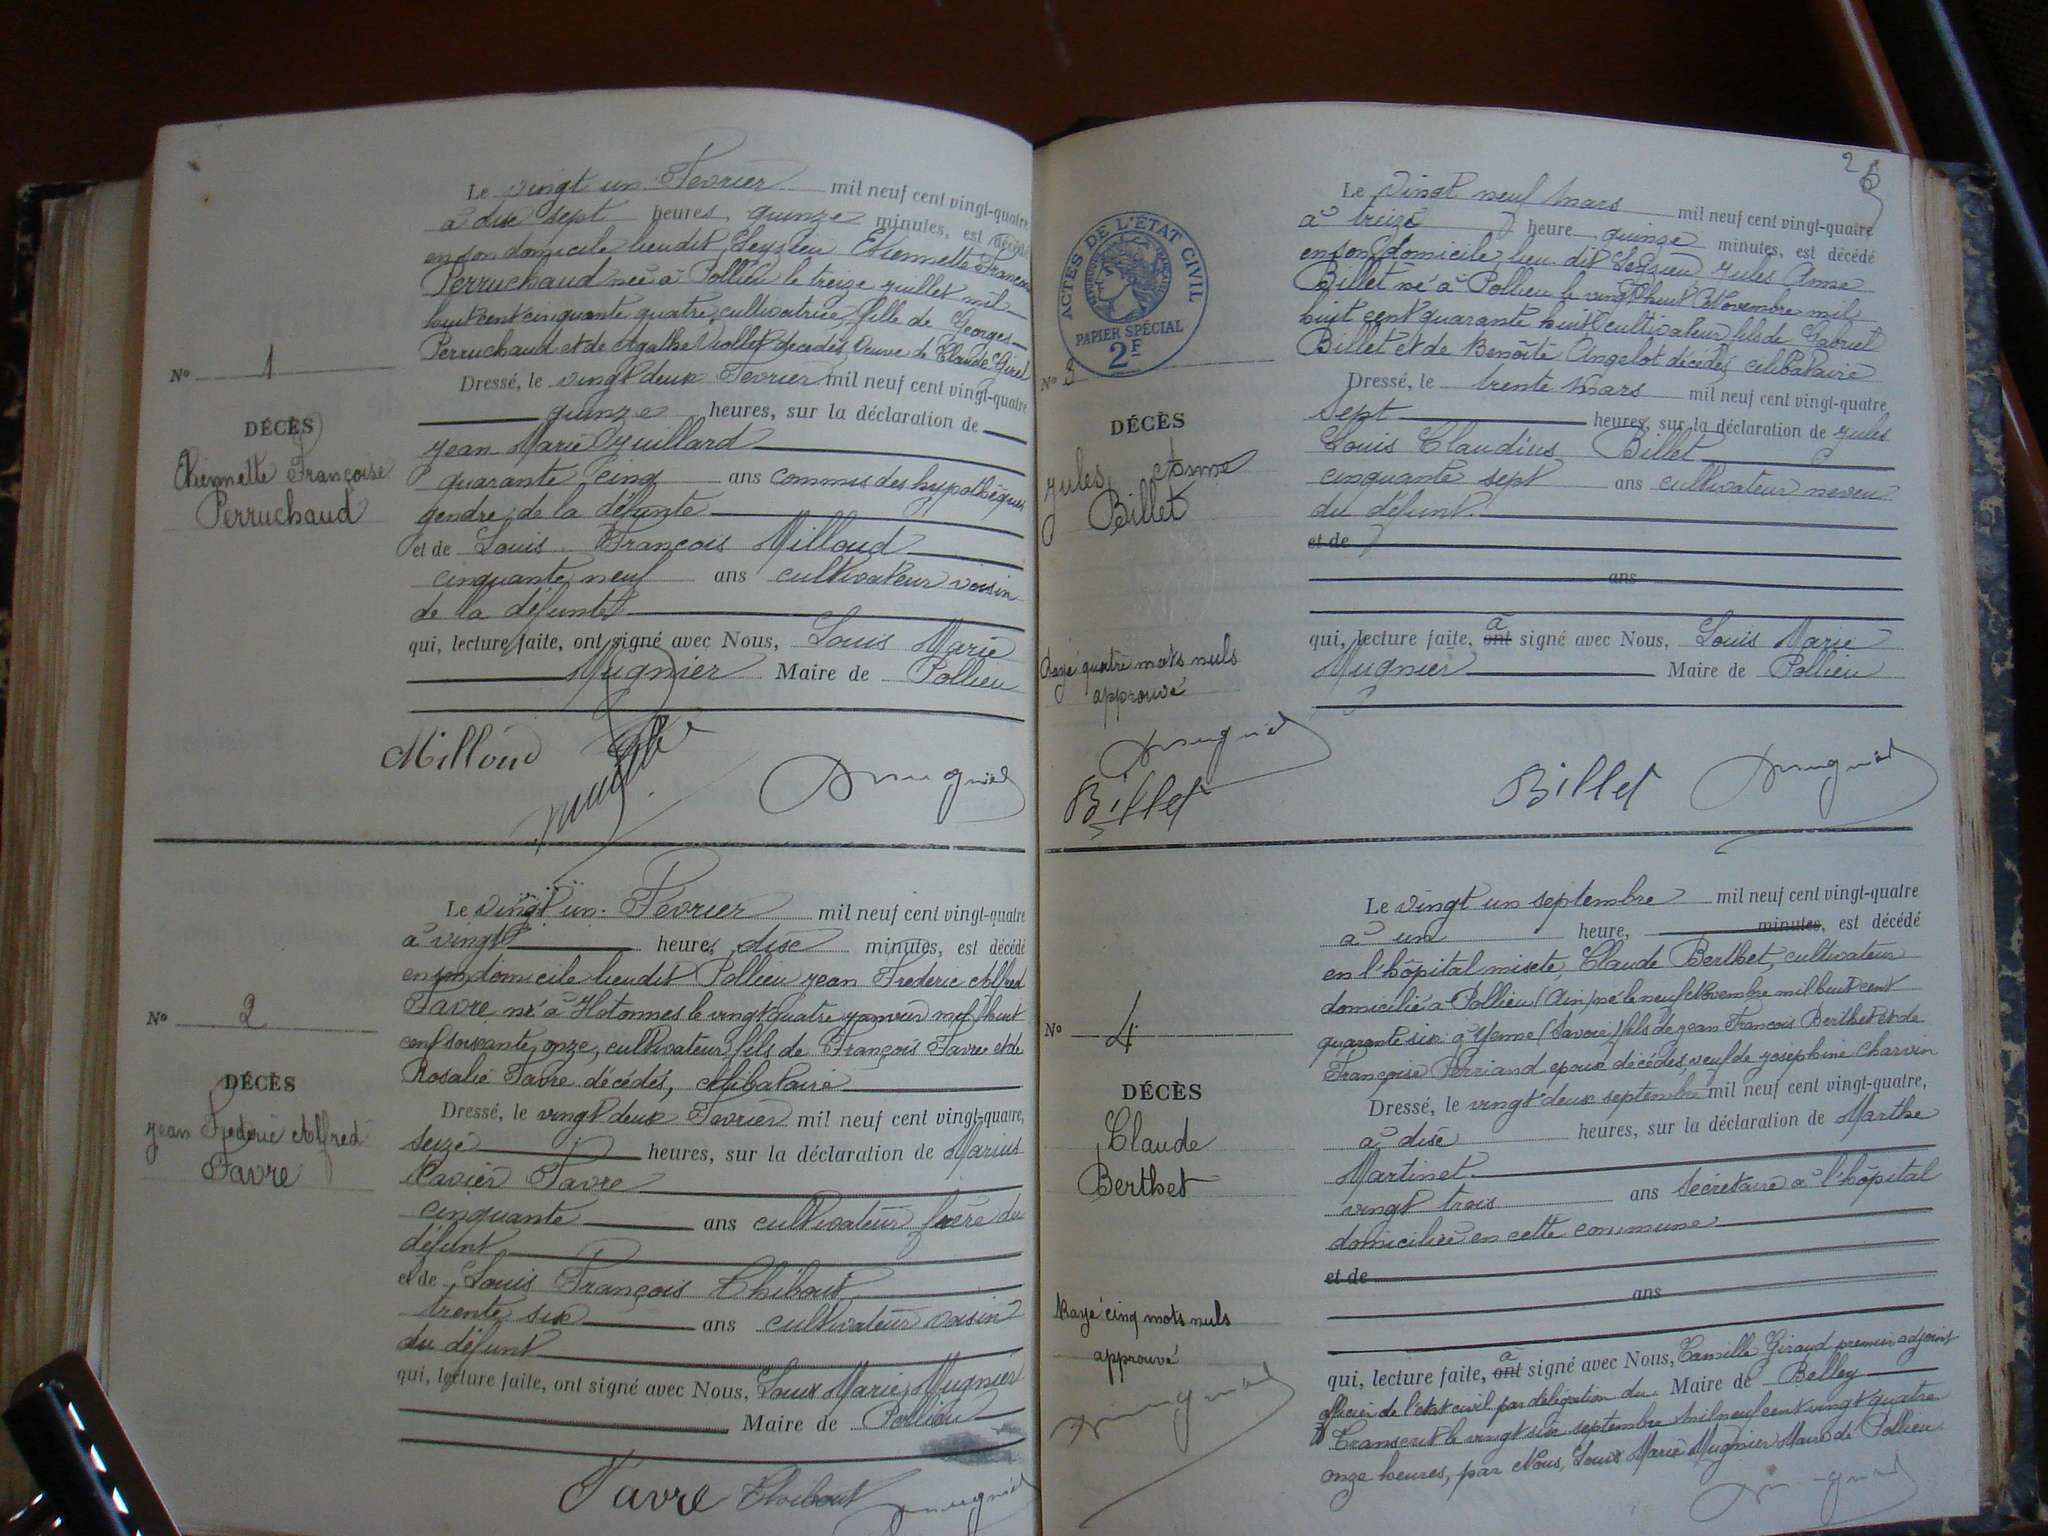 Le vingt un Fevrier mil neuf cent vingt-quatre
à dix sept heures, quinze minutes, est décédé
en son domicile lieudit Leyzieu Etiennette Françoise
Perruchaud née à Pollieu le treize juillet mil
huit cent cinquante quatre, cultivatrice, fille de Georges
Perruchaud et de Agathe décédés, veuve de Claude Girel
Nº 1
DÉCÈS
Etiennette Françoise
Perruchaud
Dressé, le vingt deux Fevrier mil neuf cent vingt-quatre
quinze heures, sur la déclaration de
Jean Marie Juillard
quarante cinq ans commis des hypothèques
gendre de la défunte
et de Louis François Milloud
cinquante neuf ans cultivateur voisin
de la défunte
qui, lecture faite, ont signé avec Nous, Louis Marie
Mugnier Maire de Pollieu
Milloud Mugnier
Le vingt un Fevrier mil neuf cent vingt-quatre
à vingt heures, dix minutes, est décédé
en son domicile lieudit Pollieu Jean Frederic Alfred
Favre né à Hotonnes le vingt quatre janvier mil huit
cent soixante onze, cultivateur, fils de François Favre et de
Rosalie Favre décédés, célibataire
Nº 2
DÉCÈS
Jean Frederic Alfred
Favre
Dressé, le vingt deux Fevrier mil neuf cent vingt-quatre,
seize heures, sur la déclaration de Marius
Xavier Favre
cinquante ans cultivateur frère du
défunt
et de Louis François Thibout
trente six ans cultivateur voisin
du défunt
qui, lecture faite, ont signé avec Nous, Louis Marie Mugnier
Maire de Pollieu
Favre Thibout Mugnier
26
ACTES DE L'ÉTAT CIVIL
RÉPUBLIQUE FRANÇAISE
PAPIER SPÉCIAL
2F
Le vingt neuf Mars mil neuf cent vingt-quatre
à treize heure quinze minutes, est décédé
en son domicile lieu dit Leyzieu, Jules Anne
Billet né à Pollieu le vingt huit Novembre mil
huit cent quarante huit cultivateur, fils de Gabriel
Billet et de Benoîte Angelot décédés célibataire
Nº 3
DÉCÈS
Jules Anne
Billet
Dressé, le trente Mars mil neuf cent vingt-quatre
sept heures, sur la déclaration de Jules
Louis Claudius Billet
cinquante sept ans cultivateur neveu
du défunt
et de
ans
qui, lecture faite, ont a signé avec Nous, Louis Marie
Mugnier Maire de Pollieu
Rayé quatre mots nuls
approuvé
Mugnier
Billet
Billet Mugnier
Le vingt un septembre mil neuf cent vingt-quatre
à un heure, minutes, est décédé
en l'hôpital mixte, Claude Berthet, cultivateur
domicilié à Pollieu (Ain) né le neuf Novembre mil huit cent
quarante six à Yenne (Savoie) fils de Jean François Berthet et de
Françoise Perriand époux décédés, veuf de Joséphine Charvin
Nº 4
DÉCÈS
Claude
Berthet
Dressé, le vingt deux septembre mil neuf cent vingt-quatre,
à dix heures, sur la déclaration de Marthe
Martinet
vingt trois ans secrétaire à l'hôpital
domiciliée en cette commune
et de
ans
Rayé cinq mots nuls
approuvé
Mugnier
qui, lecture faite, ont a signé avec Nous, Camille Giraud premier adjoint
officier de l'état civil par délégation du Maire de Belley
Transcrit le vingt six septembre mil neuf cent vingt quatre
onze heures, par Nous, Louis Marie Mugnier Maire de Pollieu
Mugnier